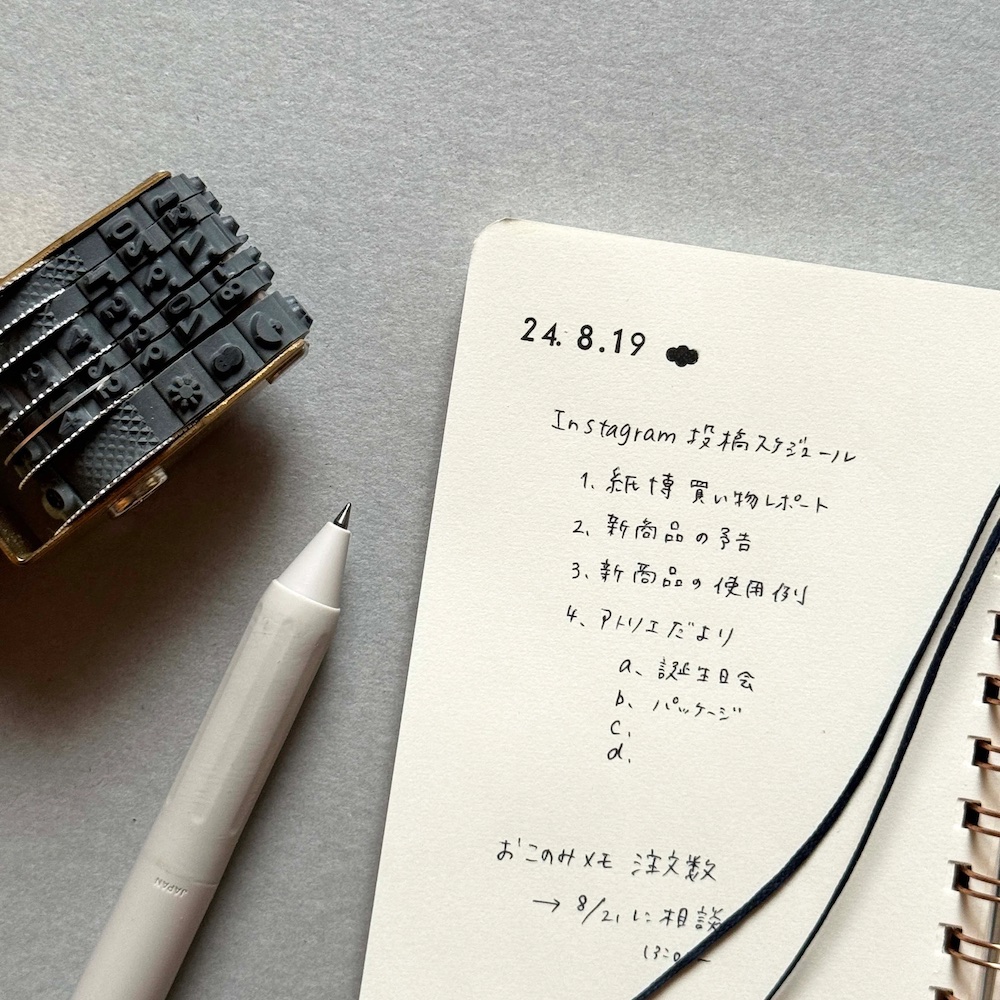 24.8.19
Instagram 投稿スケジュール
1、紙博 買い物レポート
2、新商品の予告
3、新商品の使用例
4、アトリエだより
a、誕生日会
b、パッケージ
c、
d、
おこのみメモ 注文数
→ 8/21に相談
13:00〜
JAPAN